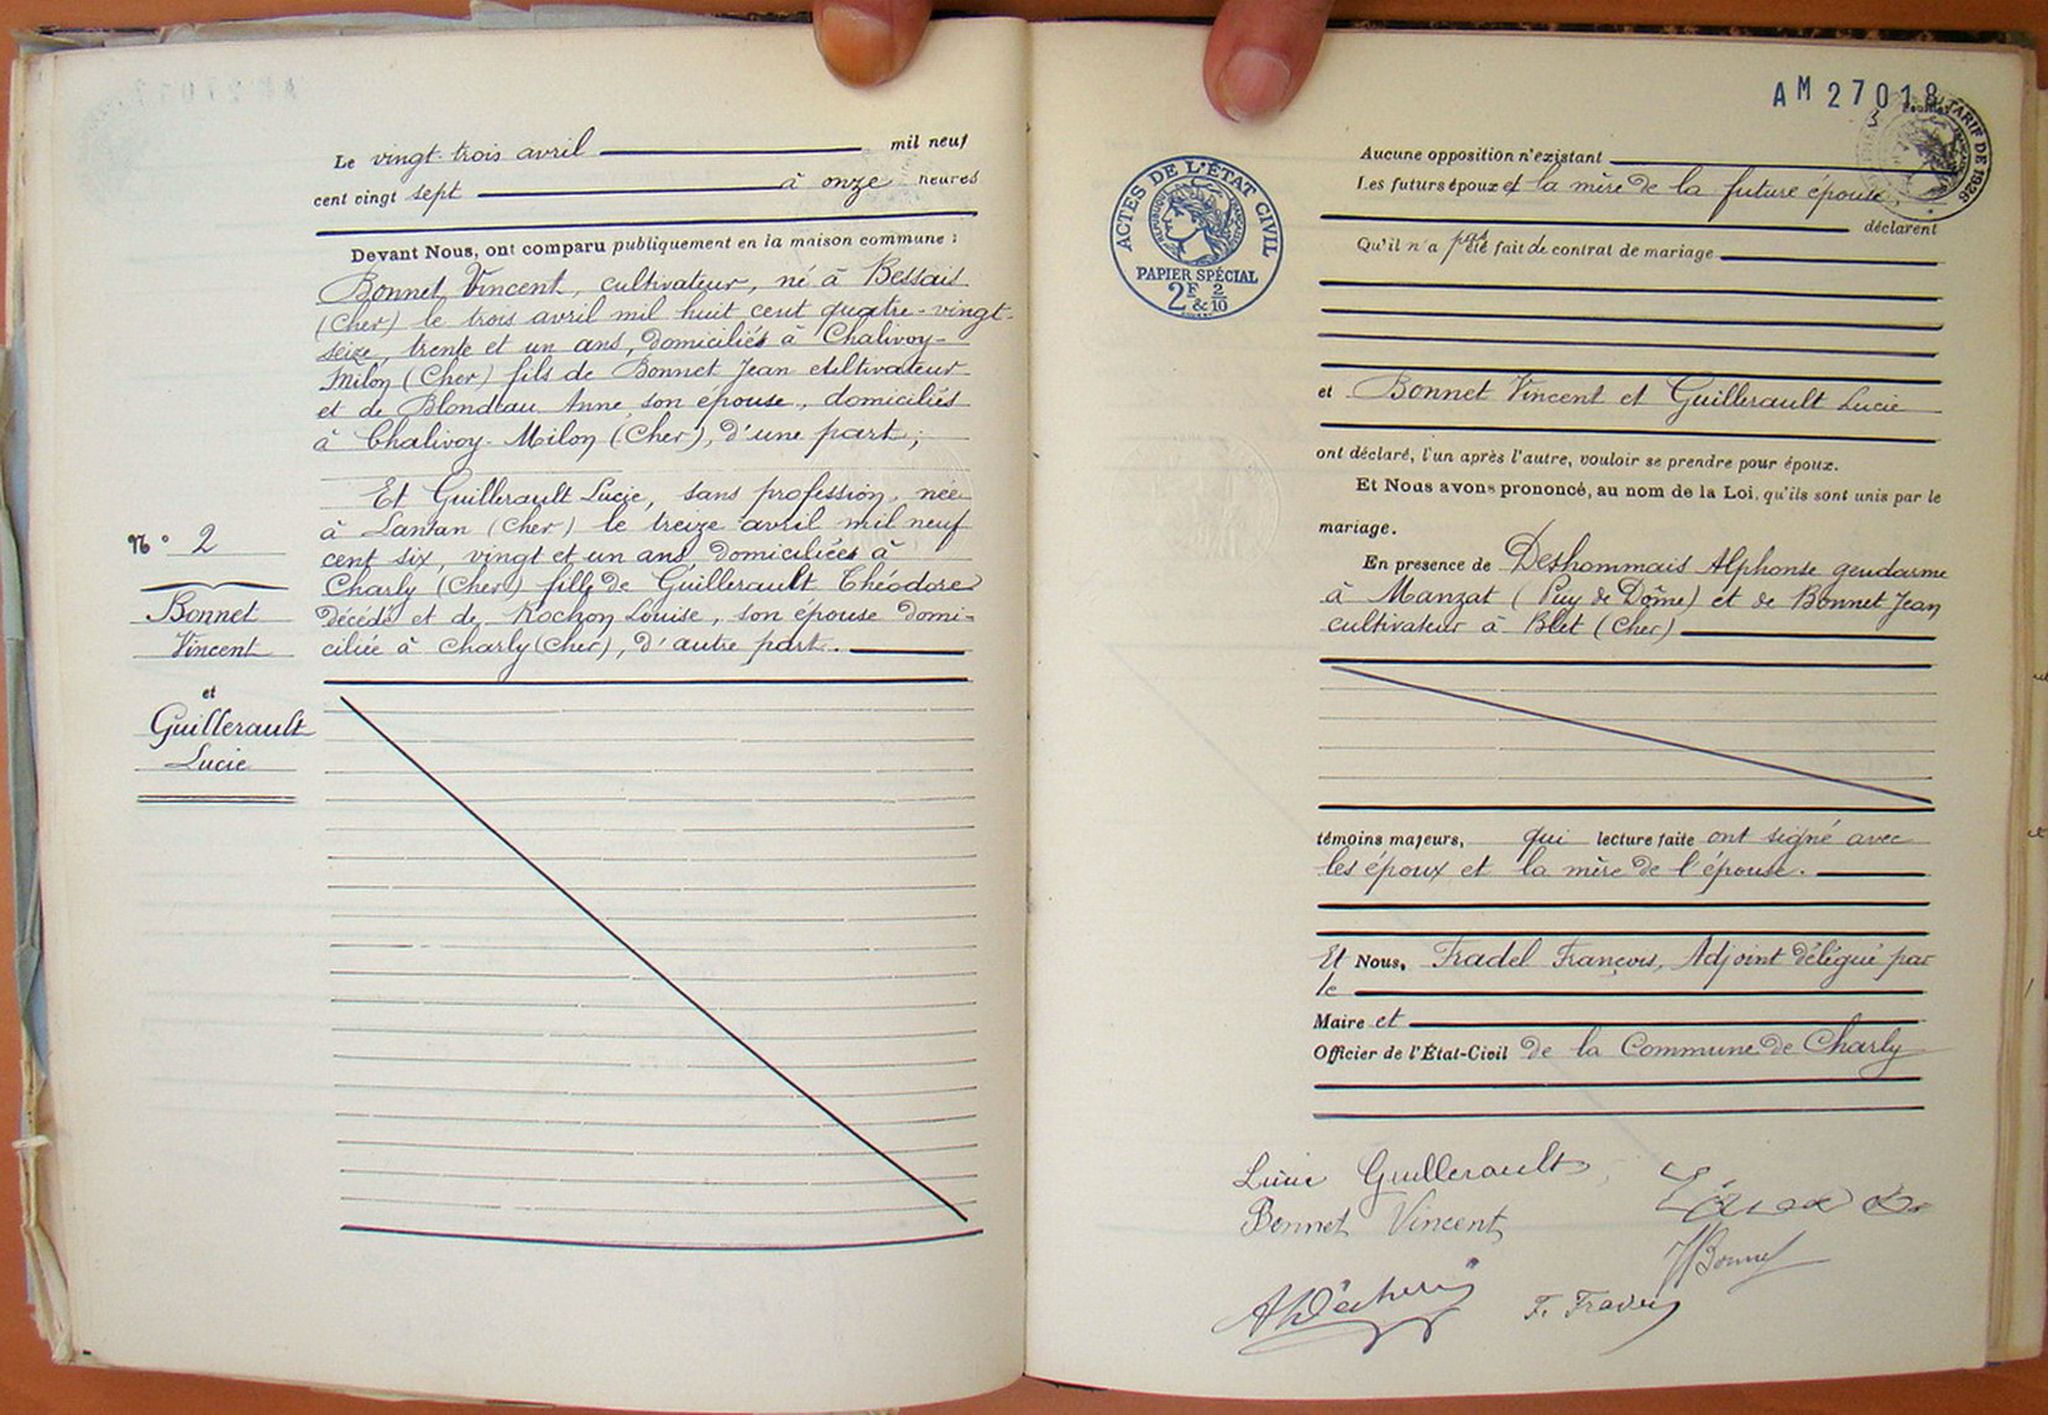 Le vingt-trois avril mil neuf
cent vingt sept à onze heures
Devant Nous, ont comparu publiquement en la maison commune :
Bonnet Vincent, cultivateur, né à Bessais
(Cher) le trois avril mil huit cent quatre-vingt-
seize, trente et un ans, domiciliés à Chalivoy-
Milon (Cher) fils de Bonnet Jean cultivateur
et de Blondeau Anne son épouse, domiciliés
à Chalivoy-Milon (Cher), d'une part ;
Et Guillerault Lucie, sans profession, née
à Lantan (Cher) le treize avril mil neuf
cent six, vingt et un ans, domiciliées à
Charly (Cher) fille de Guillerault Théodore
décédé et de Rochon Louise, son épouse domi-
ciliée à Charly (Cher), d'autre part.
N° 2
Bonnet
Vincent
et
Guillerault
Lucie
AM 27018
Feuillet
3
TARIF DE 1926
ACTES DE L'ÉTAT CIVIL
RÉPUBLIQUE FRANÇAISE
PAPIER SPÉCIAL
2F & 2/10
Aucune opposition n'existant
Les futurs époux et la mère de la future épouse,
déclarent
Qu'il n'a pas été fait de contrat de mariage
et Bonnet Vincent et Guillerault Lucie
ont déclaré, l'un après l'autre, vouloir se prendre pour époux.
Et Nous avons prononcé, au nom de la Loi, qu'ils sont unis par le
mariage.
En présence de Deshommais Alphonse gendarme
à Manzat (Puy de Dôme) et de Bonnet Jean
cultivateur à Blet (Cher)
témoins majeurs, qui lecture faite ont signé avec
les époux et la mère de l'épouse.
Et Nous, Fradel François, Adjoint délégué par
le
Maire et
Officier de l'État-Civil de la Commune de Charly
Lucie Guillerault
Bonnet Vincent
J Bonnet
F. Fradel